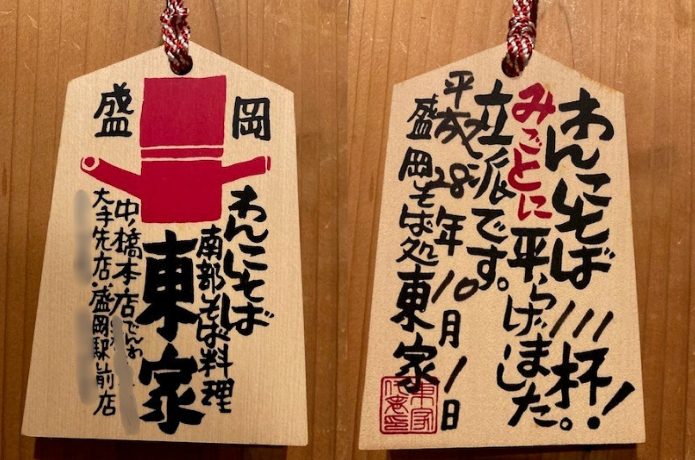 盛岡
わんこそば
南部そば料理
東家
中ノ橋本店でんわ
大手先店・盛岡駅前店
わんこそば111杯!
みごとに平らげました。
立派です。
平成28年10月1日
盛岡そば処東家